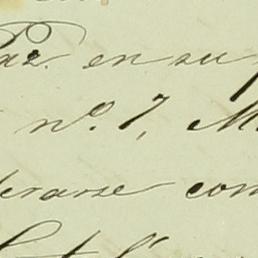 Paz. en su
nº. 7, M
erarse con